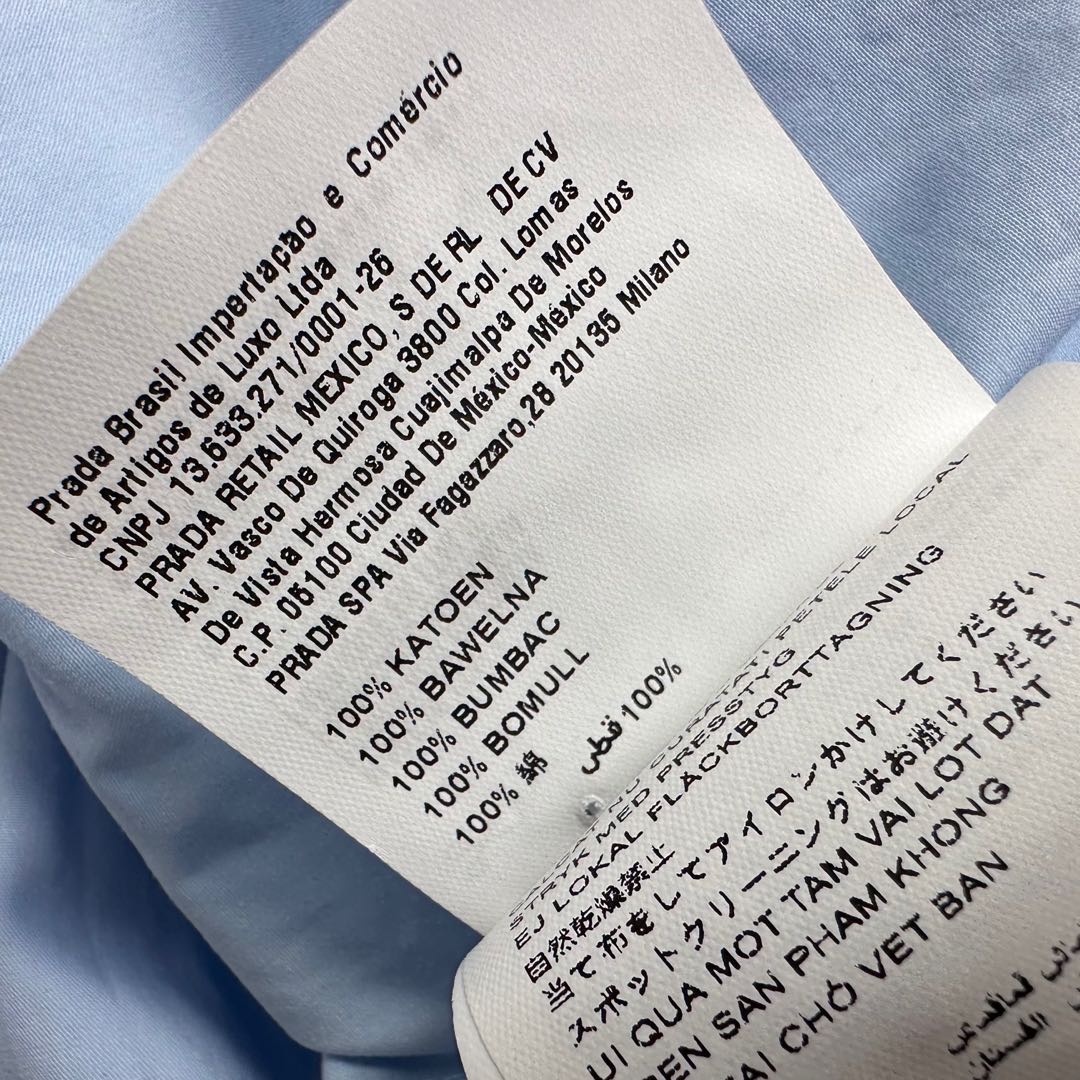 Prada Brasil Impertação e Comércio
de Artigos de Luxo Ltda
CNPJ 13.633.271/0001-26
PRADA RETAIL MEXICO, S DE RL DE CV
AV. Vasco De Quiroga 3800 Col. Lomas
De Vista Hermosa Cuajimalpa De Morelos
C.P. 05100 Ciudad De México-México
PRADA SPA Via Fagazzaro,28 20135 Milano
100% KATOEN
100% BAWELNA
100% BUMBAC
100% BOMULL
100% 綿
100% قطن
NU CURATATI PETELE LOCAL
STRYK MED PRESSTYG
EJ LOKAL FLÄCKBORTTAGNING
自然乾燥禁止
当て布をしてアイロンかけしてください
スポットクリーニングはお避けください
UI QUA MOT TAM VAI LOT DAT
SAN PHAM KHONG
CHO VET BAN